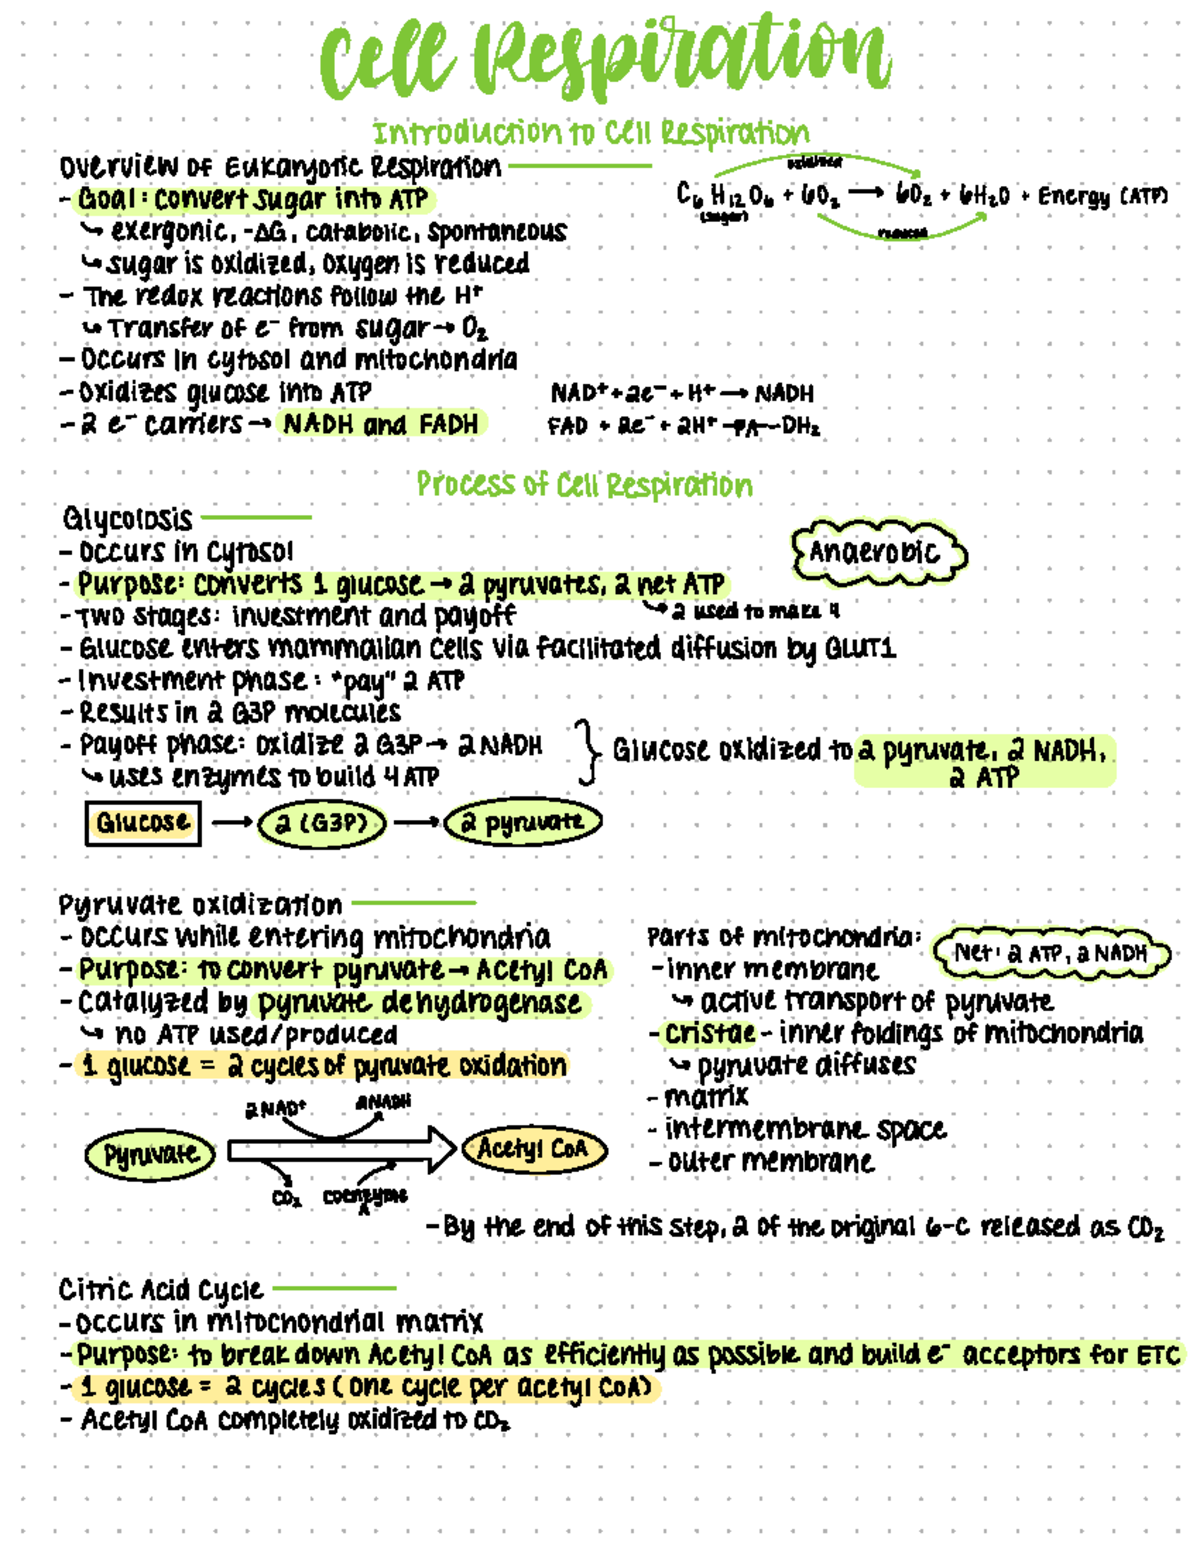 Cell Respiration
Introduction to Cell Respiration
Overview of Eukaryotic Respiration
- Goal: convert sugar into ATP
↳ exergonic, -ΔG, catabolic, spontaneous
↳ sugar is oxidized, oxygen is reduced
- The redox reactions follow the H⁺
↳ Transfer of e⁻ from sugar → O₂
- Occurs in cytosol and mitochondria
- Oxidizes glucose into ATP
- 2 e⁻ carriers → NADH and FADH
oxidized
C₆H₁₂O₆ + 6O₂ → 6O₂ + 6H₂O + Energy (ATP)
(sugar)
reduced
NAD⁺ + 2e⁻ + H⁺ → NADH
FAD + 2e⁻ + 2H⁺ DH₂
Process of Cell Respiration
Glycolosis
- Occurs in cytosol
- Purpose: converts 1 glucose → 2 pyruvates, 2 net ATP
↳ 2 used to make 4
Anaerobic
- Two stages: investment and payoff
- Glucose enters mammalian cells via facilitated diffusion by GLUT1
- Investment phase: "pay" 2 ATP
- Results in 2 G3P molecules
- Payoff phase: oxidize 2 G3P → 2 NADH
↳ uses enzymes to build 4 ATP
Glucose oxidized to 2 pyruvate, 2 NADH,
2 ATP
Glucose → 2 (G3P) → 2 pyruvate
Pyruvate oxidization
- occurs while entering mitochondria
- Purpose: to convert pyruvate → Acetyl CoA
- Catalyzed by pyruvate dehydrogenase
↳ no ATP used/produced
- 1 glucose = 2 cycles of pyruvate oxidation
2 NAD⁺ 2NADH
Pyruvate Acetyl CoA
CO₂ coenzyme
A
Parts of mitochondria:
Net: 2 ATP, 2 NADH
- inner membrane
↳ active transport of pyruvate
- cristae - inner foldings of mitochondria
↳ pyruvate diffuses
- matrix
- intermembrane space
- outer membrane
- By the end of this step, 2 of the original 6-C released as CO₂
Citric Acid Cycle
- occurs in mitochondrial matrix
- Purpose: to break down Acetyl CoA as efficiently as possible and build e⁻ acceptors for ETC
- 1 glucose = 2 cycles (one cycle per acetyl CoA)
- Acetyl CoA completely oxidized to CO₂